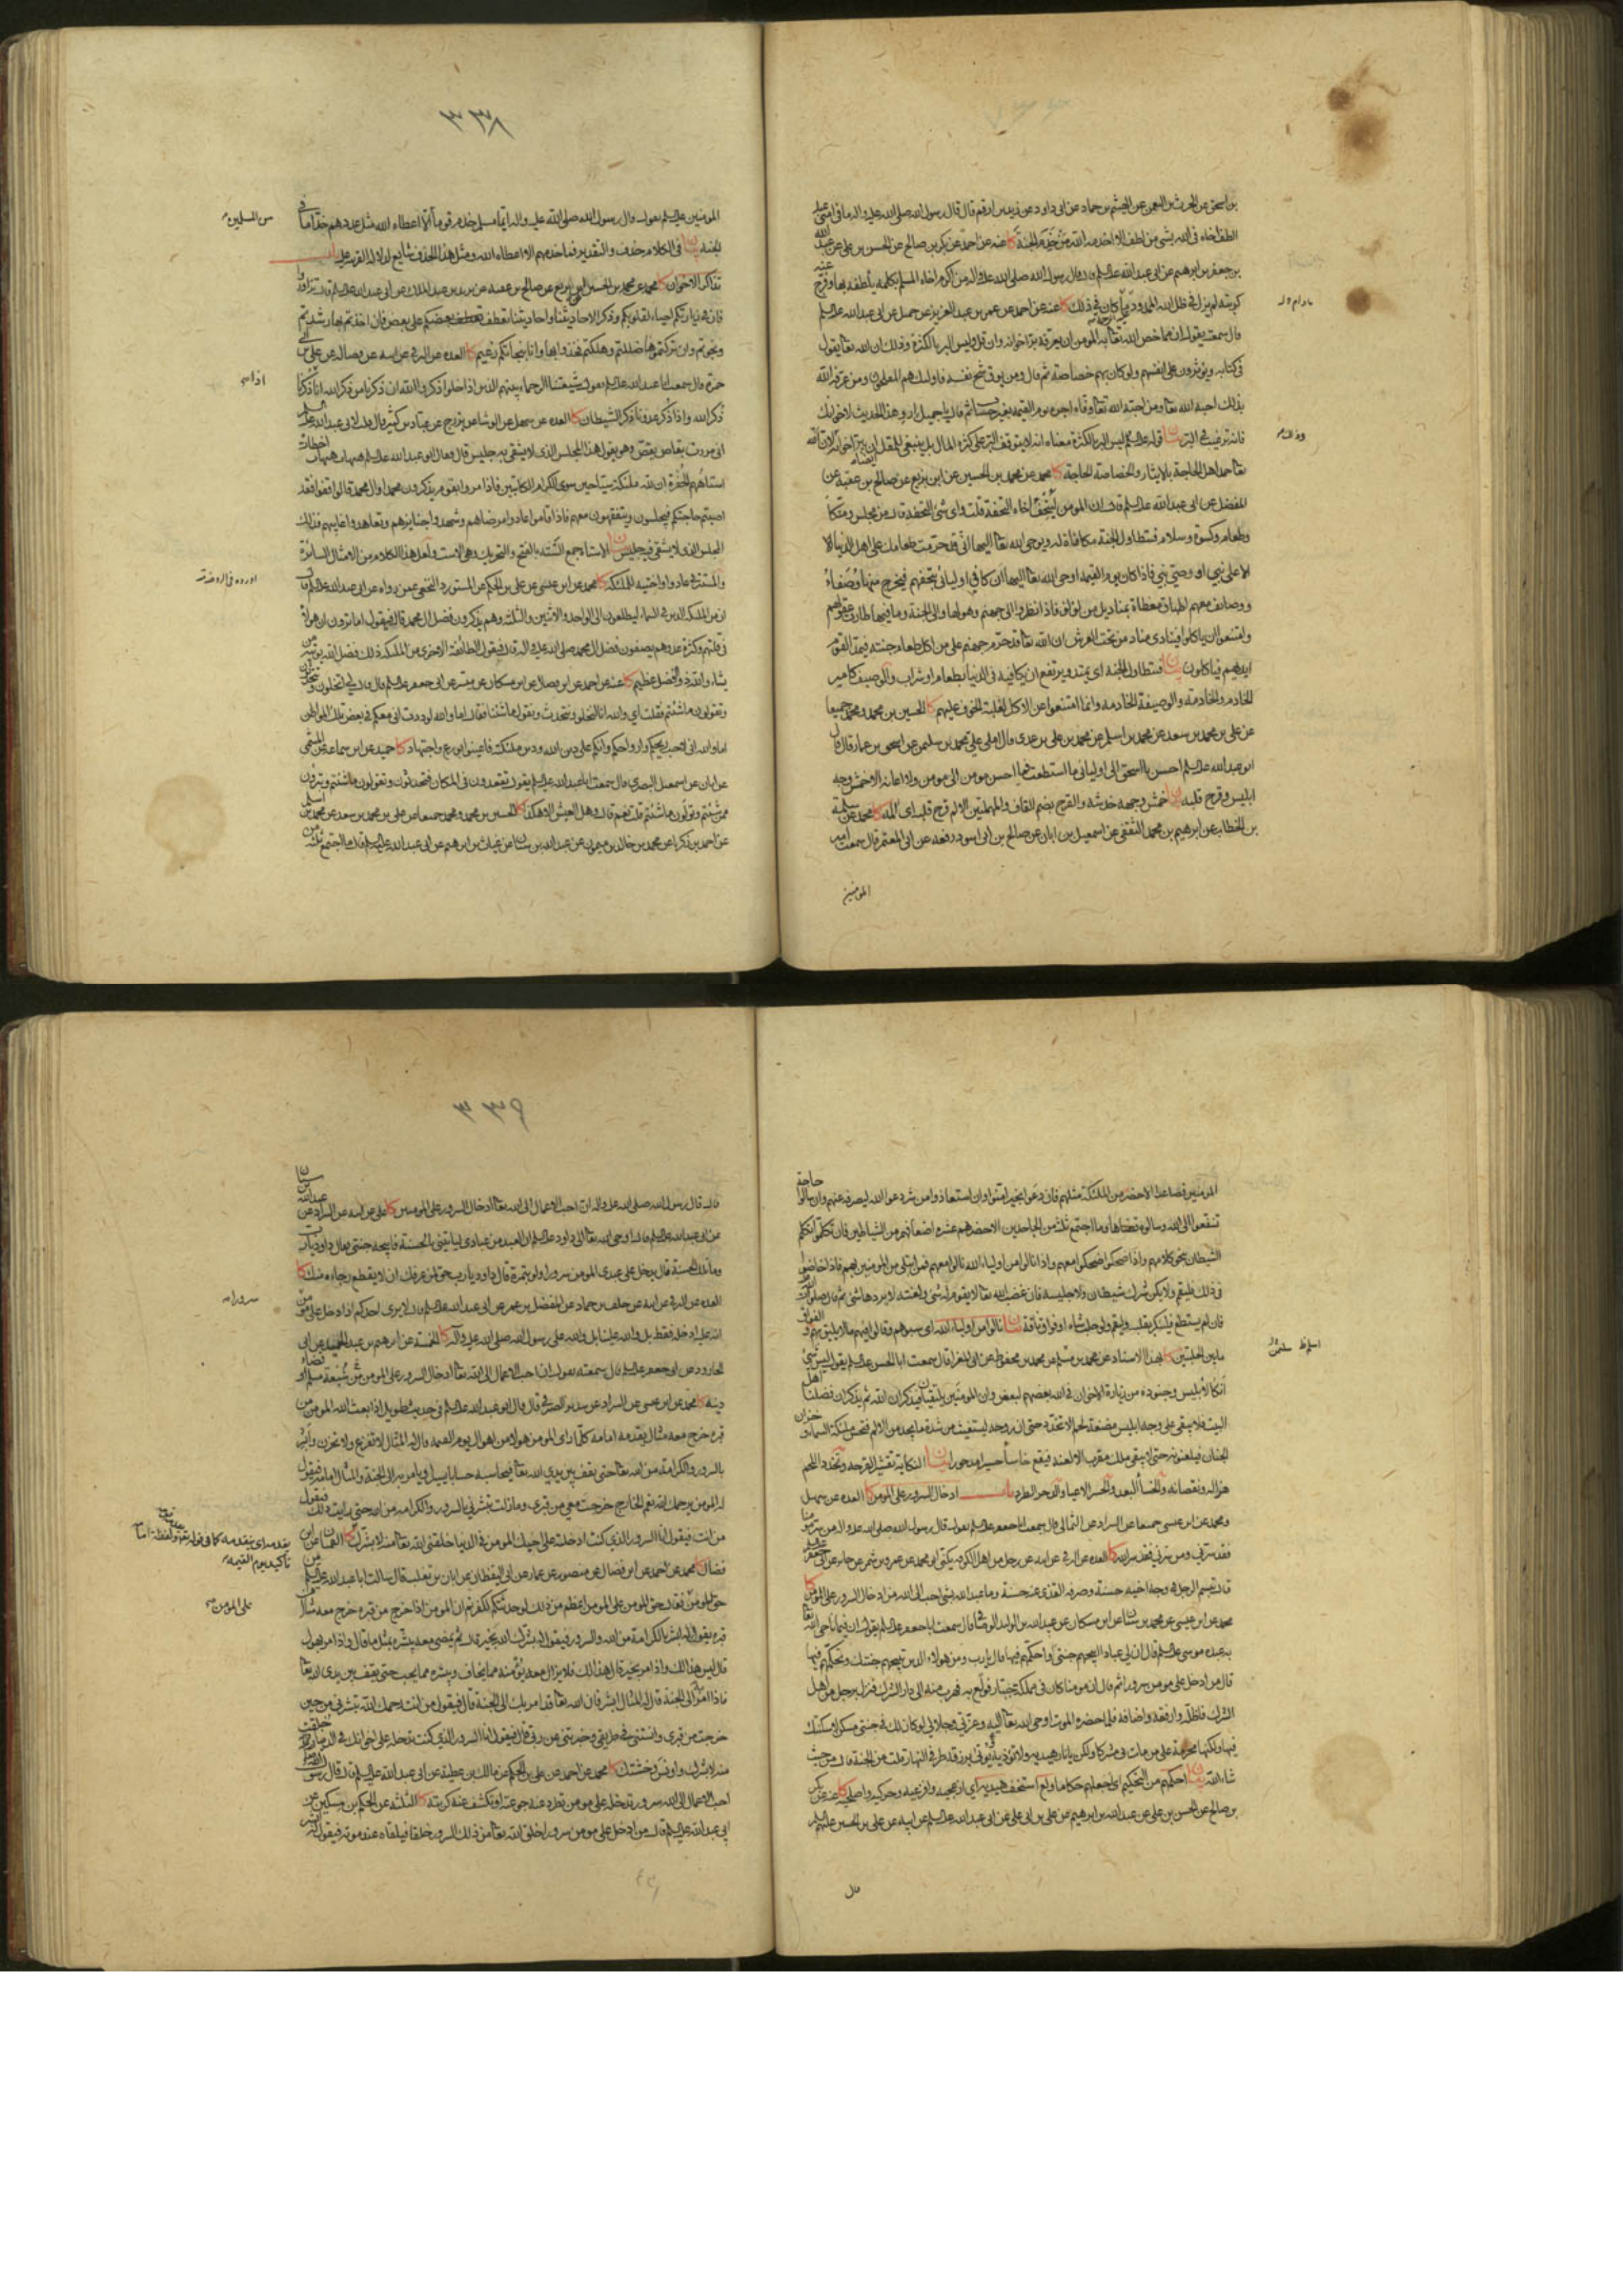 بن اسحق عن الحرث بن النعمن عن الهيثم بن حماد عن ابى داود عن زيد بن ارقم قال قال رسول الله صلى الله عليه واله ما فى امتى عبد
الطف اخاه فى الله بشى من لطف الا اخدمه الله من خدم الجنة كا عنه عن احمد عن بكر بن صالح عن الحسن بن على عن عبد الله
بن جعفر بن ابرهيم عن ابى عبد الله قال قال رسول الله صلى الله عليه واله من اكرم اخاه المسلم بكلمه يلطفه بها وفرج عنه
كربته لم يزل فى ظل الله الممدود ما كان فى ذلك كا عنه عن احمد عن عمر بن عبد العزيز عن جميل عن ابى عبد الله
مادام
قال سمعته يقول ان مما خص الله تعا به المومن ان يعرفه بر اخوانه وان قل وليس البر بالكثرة وذلك ان الله تعا يقول
فى كتابه ويؤثرون على انفسهم ولو كان بهم خصاصة ثم قال ومن يوق شح نفسه فاولئك هم المفلحون ومن عرفه الله
بذلك احبه الله تعا ومن احبه الله تعا وفاه اجره يوم القيمه بغير حساب ثم قال يا جميل ارو هذا الحديث لاخوانك
فانه ترغيب فى البر بيان قوله ليس البر بالكثرة معناه انه لا يتوقف البر على كثرة المال بل ينبغى للمقل ان يبر اخوانه لان الله
تعا حمد اهل الحاجة بالايثار والخصاصة الحاجة كا محمد عن محمد بن الحسين عن ابن بزيع عن صالح بن عقبة عن
المفضل عن ابى عبد الله قال ان المومن ليتحف اخاه التحفة قلت واى شئ التحفة قال من مجلس ومتكأ
وطعام وكسوة وسلام فتطاول الجنة مكافاة له ويوحى الله تعا اليها انى قد حرمت طعامك على اهل الدنيا الا
الا على نبى او وصى نبى فاذا كان يوم القيمه اوحى الله تعا اليها ان كافى اوليائى بتحفهم فيخرج منها وصفاء
ووصائف معهم اطباق مغطاة بمناديل من لؤلؤ فاذا نظروا الى جهنم وهولها والى الجنة وما فيها طارت عقولهم
وامتنعوا ان ياكلوا فينادى مناد من تحت العرش ان الله تعا قد حرم جهنم على من اكل طعام جنته فيمد القوم
ايديهم فياكلون بيان فتطاول الجنة اى يمتد ويرتفع ان يكافيه فى الدنيا بطعام او شراب والوصيف كامير
الخادم والخادمه والوصيفة الخادمه وانما امتنعوا عن الاكل لغلبة الخوف عليهم كا الحسين بن محمد ومحمد جميعا
عن على بن محمد بن سعد عن محمد بن اسلم عن محمد بن على بن عدى قال املى على محمد بن سليمن عن اسحق بن عمار قال قال
ابو عبد الله احسن يا اسحق الى اوليائى ما استطعت فما احسن مومن الى مومن ولا اعانه الا خمش وجه
ابليس وقرح قلبه بيان خمش وجهه خدشه والقرح بضم القاف والمهملتين الالم قرح قلبه اى المه كا محمد عن سلمة
بن الخطاب عن ابرهيم بن محمد الثقفى عن اسمعيل بن ابان عن صالح بن ابى اسود رفعه عن ابى المعتمر قال سمعت امير
المومنين
٣٣٨
المومنين يقول قال رسول الله صلى الله عليه واله ايما مسلم خدم قوما الا اعطاه الله مثل عددهم خداما فى
من المسلمين
الجنه بيان فى الكلام حذف والتقدير فما خدمهم الا اعطاه الله ومثل هذا الحذف شايع لدلالة القرينه عليه باب
تذاكر الاخوان كا محمد عن محمد بن الحسين عن ابن بزيع عن صالح بن عقبه عن يزيد بن عبد الملك عن ابى عبد الله قال تزاوروا
فان فى زيارتكم احياء لقلوبكم وذكرا لاحاديثنا واحاديثنا تعطف بعضكم على بعض فان اخذتم بها رشدتم
ونجوتم وان تركتموها ضللتم وهلكتم فخذوا بها وانا بنجاتكم زعيم كا العده عن البرقى عن ابيه عن فضاله عن على بن ابى
حمزة قال سمعت ابا عبد الله يقول شيعتنا الرحماء بينهم الذين اذا خلوا ذكروا الله ان ذكرنا من ذكر الله انا اذا ذكرنا
ذكر الله واذا ذكر عدونا ذكر الشيطان كا العده عن سهل عن الوشا عن بزرج عن عباد بن كثير قال قلت لابى عبد الله
انى مررت بقاص يقص وهو يقول هذا المجلس الذى لا يشقى به جليس قال فقال ابو عبد الله هيهات هيهات اخطات
استاههم الحفرة ان لله ملئكة سياحين سوى الكرام الكاتبين فاذا مروا بقوم يذكرون محمدا وال محمد قالوا قفوا فقد
اصبتم حاجتكم فيجلسون ويتفقهون معهم فاذا قاموا عادوا مرضاهم وشهدوا جنائزهم وتعاهدوا غايبهم فذلك
المجلس الذى لا يشقى به جليس
اورده فى الروضة
والمستتر فى عادوا واختيه للملئكة كا محمد عن ابن عيسى عن على بن الحكم عن المستورد النخعى عمن رواه عن ابى عبد الله قال
ان من الملئكة الذين فى السماء ليطلعون الى الواحد والاثنين والثلثة وهم يذكرون فضل ال محمد قال فيقول اما ترون ان هؤلاء
فى قلتهم وكثرة عدوهم يصفون فضل ال محمد صلى الله عليه واله قال فيقول الطائفة الاخرى من الملئكة ذلك فضل الله يؤتيه من
يشاء والله ذو الفضل العظيم كا عنه عن احمد عن ابن فضال عن ابن مسكان عن ميسر عن ابى جعفر قال قال لى اتخلون وتتحدثون
وتقولون ما شئتم فقلت اى والله انا لنخلوا ونتحدث ونقول ما شئنا فقال اما والله لوددت انى معكم فى بعض تلك المواطن
اما والله انى لاحب ريحكم وارواحكم وانكم على دين الله ودين ملئكته فاعينوا بورع واجتهاد كا حميد عن ابن سماعة عن الميثمى
عن ابان عن اسمعيل البصرى قال سمعت ابا عبد الله يقول تقعدون فى المكان فتحدثون وتقولون ما شئتم وتبرؤن
ممن شئتم وتولون ما شئتم قلت نعم قال وهل العيش الا هكذا كا الحسين بن محمد ومحمد جميعا عن على بن محمد بن سعد عن محمد بن اسلم
عن احمد بن زكريا عن محمد بن خالد بن ميمون عن عبد الله بن سنان عن غياث بن ابرهيم عن ابى عبد الله قال ما اجتمع ثلثه من
المومنين فصاعدا الا حضر من الملئكة مثلهم فان دعوا بخير امنوا وان استعاذوا من شر دعوا الله ليصرفه عنهم وان سالوا حاجة
تشفعوا الى الله وسالوه قضاها وما اجتمع ثلثه من الجاحدين الا حضرهم عشره اضعافهم من الشياطين فان تكلموا تكلم
الشيطان بنحو كلامهم واذا ضحكوا ضحكوا معهم واذا نالوا من اولياء الله نالوا معهم فمن ابتلى من المومنين بهم فاذا خاضوا
فى ذلك فليقم ولا يكن شرك شيطان ولا جليسه فان غضب الله تعا لا يقوم له شئ ولعنته لا يردها شئ ثم قال صلوات الله عليه
فان لم يستطع فلينكر بقلبه وليقم ولو حلب شاة او فواق ناقة بيان نالوا من اولياء الله اى سبوهم وقالوا فيهم ما لا يليق بهم والفواق
ما بين الحلبتين كا بهذا الاسناد عن محمد بن سليمن عن محمد بن محفوظ عن ابى المغرا قال سمعت ابا الحسن يقول ليس شئ
انكا لابليس وجنوده من زيارة الاخوان فى الله بعضهم لبعض وان المومنين يلتقيان فيذكران الله ثم يذكران فضلنا اهل
البيت فلا يبقى على وجه ابليس مضغة لحم الا تخدد حتى ان روحه لتستغيث من شدة ما يجد من الالم فتحس ملئكة السماء وخزان
الجنان فيلعنونه حتى لا يبقى ملك مقرب الا لعنه فيقع خاسئا حسيرا مدحورا بيان النكاية تقشير القرحه وتخدد اللحم
هزاله ونقصانه والخسأ البعد والحسر الاعيا والدحور الطرد باب ادخال السرور على المومن كا العده عن سهل
ومحمد عن ابن عيسى جميعا عن السراد عن الثمالى قال سمعت ابا جعفر يقول قال رسول الله صلى الله عليه واله من سر مومنا
فقد سرنى ومن سرنى فقد سر الله كا العده عن البرقى عن ابيه عن رجل من اهل الكوفه يكنى ابا محمد عن عمرو بن شمر عن جابر عن ابى جعفر
قال تبسم الرجل فى وجه اخيه حسنة وصرفه القذى عنه حسنة وما عبد الله بشئ احب الى الله من ادخال السرور على المومن كا
محمد عن ابن عيسى عن محمد بن سنان عن ابن مسكان عن عبيد الله بن الوليد الوصافى قال سمعت ابا جعفر يقول ان فيما ناجى الله تعا
به عبده موسى قال ان لى عبادا ابيحهم جنتى واحكمهم فيها قال يا رب ومن هؤلاء الذين تبيحهم جنتك وتحكمهم فيها
قال من ادخل على مومن سرورا ثم قال ان مومنا كان فى مملكة جبار فولع به فهرب منه الى دار الشرك فنزل برجل من اهل
الشرك فاظله وارفقه واضافه فلما حضره الموت اوحى الله تعا اليه وعزتى وجلالى لو كان لك فى جنتى مسكن لاسكنتك
فيها ولكنها محرمة على من مات بى مشركا ولكن يا نار هيديه ولا تؤذيه ويؤتى برزقه طرفى النهار قلت من الجنة قال من حيث
شاء الله بيان احكمهم من التحكيم اى اجعلهم حكاما وولع استخف هيديه اى ازعجيه وافزعيه وحركيه واصلحيه كا عنه عن بكر
بن صالح عن الحسن بن على عن عبد الله بن ابرهيم عن على بن ابى على عن ابى عبد الله عن ابيه عن على بن الحسين
قال
٣٣٩
قال قال رسول الله صلى الله عليه واله ان احب الاعمال الى الله تعا ادخال السرور على المومنين كا على عن ابيه عن السراد عن عبد الله بن سنان
عن ابى عبد الله قال اوحى الله تعا الى داود ان العبد من عبادى لياتينى بالحسنة فابيحه جنتى فقال داود يا رب
وما تلك الحسنة قال يدخل على عبدى المومن سرورا ولو بتمرة قال داود يا رب حق لمن عرفك ان لا يقطع رجاءه منك كا
العده عن البرقى عن ابيه عن خلف بن حماد عن المفضل بن عمر عن ابى عبد الله قال لا يرى احدكم اذا ادخل على مومن
سرورا
انه عليه ادخله فقط بل والله علينا بل والله على رسول الله صلى الله عليه واله كا الخمسة عن ابرهيم بن عبد الحميد عن ابى
الجارود عن ابى جعفر قال سمعته يقول ان احب الاعمال الى الله تعا ادخال السرور على المومن شبعة مسلم او قضاء
دينه كا محمد عن ابن عيسى عن السراد عن سدير الصيرفى قال قال ابو عبد الله فى حديث طويل اذا بعث الله المومن من
قبره خرج معه مثال يقدمه امامه كلما راى المومن هولا من اهوال يوم القيمه قال له المثال لا تفزع ولا تحزن وابشر
بالسرور والكرامة من الله تعا حتى يقف بين يدى الله تعا فيحاسبه حسابا يسيرا ويامر به الى الجنة والمثال امامه فيقول
له المومن يرحمك الله نعم الخارج خرجت معى من قبرى وما زلت تبشرنى بالسرور والكرامه من الله حتى رايت ذلك فيقول
من انت فيقول انا السرور الذى كنت ادخلته على اخيك المومن فى الدنيا خلقنى الله تعا منه لابشرك
يقدمه اى يتقدمه كما فى قوله تعا
تاكيد يوم القيمه
فضال كا محمد عن احمد عن ابن فضال عن منصور عن عمار عن ابى اليقظان عن ابان بن تغلب قال سالت ابا عبد الله عن
حق المومن فقال حق المومن على المومن اعظم من ذلك لو حدثتكم لكفرتم ان المومن اذا خرج من قبره خرج معه مثال
على المومن
قبره يقول له ابشر بالكرامة من الله والسرور فيقول له بشرك الله بخير قال ثم يمضى معه يبشره بمثل ما قال واذا مر بهول
قال ليس هذا لك واذا مر بخير قال هذا لك فلا يزال معه يؤمنه مما يخاف ويبشره مما يحب حتى يقف بين يدى الله تعا
فاذا امر به الى الجنة قال له المثال ابشر فان الله تعا قد امر بك الى الجنة قال فيقول من انت رحمك الله تبشرنى من حين
خرجت من قبرى وانستنى فى طريقى وخبرتنى عن ربى قال فيقول انا السرور الذى كنت تدخله على اخوانك فى الدنيا خلقت
منه لابشرك واونس وحشتك كا محمد عن احمد عن على بن الحكم عن مالك بن عطية عن ابى عبد الله قال قال رسول الله
احب الاعمال الى الله سرور تدخله على مومن تطرد عنه جوعته او تكشف عنه كربته كا الثلثه عن الحكم بن مسكين عن
ابى عبد الله قال من ادخل على مومن سرورا خلق الله تعا من ذلك السرور خلقا فيلقاه عند موته فيقول له